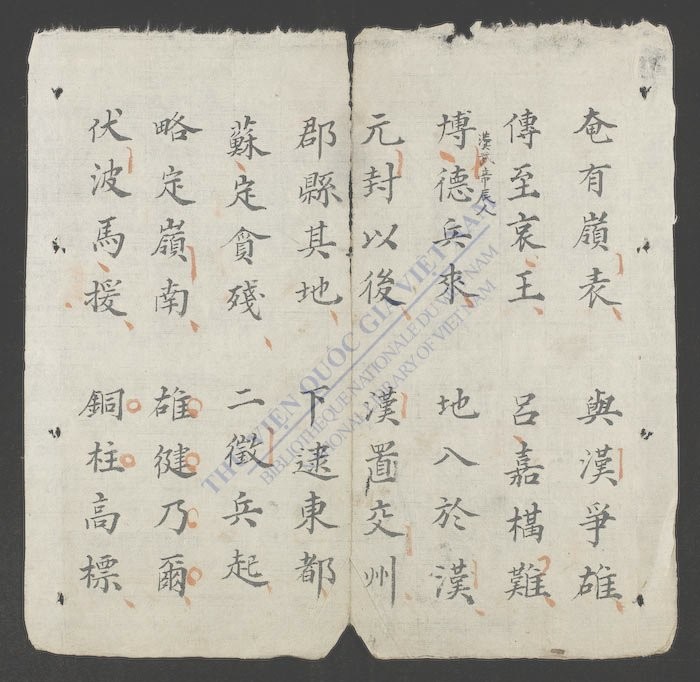 奄有嶺表 與漢爭雄
傳至哀王 呂嘉構難
漢武帝辰人
博德兵來 地入於漢
元封以後 漢置交州
郡縣其地 下逮東都
蘇定貪殘 二徵兵起
略定嶺南 雄健乃爾
伏波馬援 銅柱高標
THƯ VIỆN QUỐC GIA VIỆT NAM
BIBLIOTHEQUE NATIONALE DU VIETNAM
NATIONAL LIBRARY OF VIETNAM